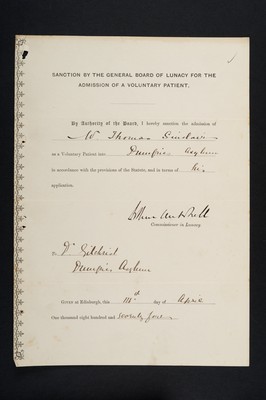 SANCTION BY THE GENERAL BOARD OF LUNACY FOR THE
ADMISSION OF A VOLUNTARY PATIENT.
By Authority of the Board, I hereby sanction the admission of
Mr Thomas
as a Voluntary Patient into Dumfries Asylum
in accordance with the provisions of the Statute, and in terms of his
application.
Arthur Mitchell
Commissioner in Lunacy.
To Dr Gilchrist
Dumfries Asylum
GIVEN at Edinburgh, this day of April
One thousand eight hundred and seventy four